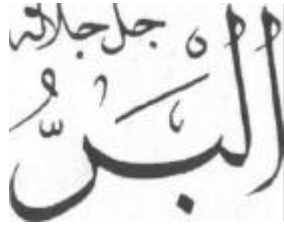 جل جلاله
البَرُّ